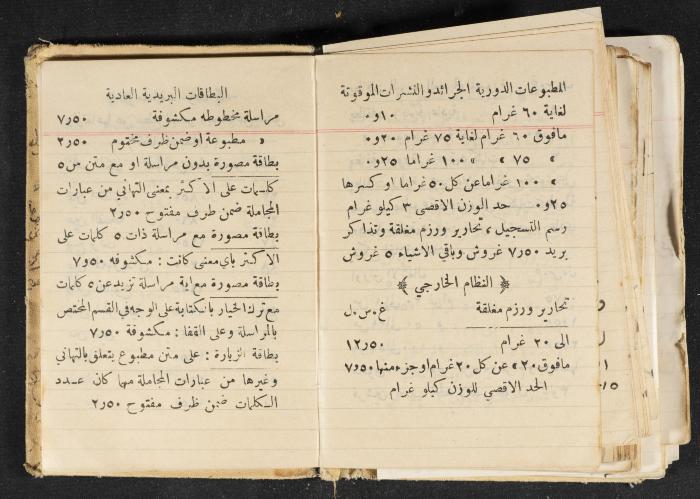 المطبوعات الدورية الجرائد والنشرات الموقوتة
لغاية ٦٠ غرام ١٠و٠
مافوق ٦٠ غرام لغاية ٧٥ غرام ٢٠و٠
» ٧٥ » » ١٠٠ غراما ٢٥و٠
» ١٠٠ غراما عن كل ٥٠ غراما او كسرها
٢٥و٠ حد الوزن الاقصى ٣ كيلو غرام
رسم التسجيل، تحارير ورزم مغلقة وتذاكر
بريد ٧٫٥٠ غروش وباقي الأشياء ٥ غروش
﴿ النظام الخارجي ﴾
تحارير ورزم مغلقة غ.س.ل
الى ٢٠ غرام ١٢٫٥٠
مافوق ٢٠ » عن كل ٢٠ غرام او جزء منها ٧٫٥٠
الحد الاقصي للوزن كيلو غرام
البطاقات البريدية العادية
مراسلة مخطوطه مكشوفة ٧٫٥٠
» مطبوعة او ضمن ظرف مختوم ٢٫٥٠
بطاقة مصورة بدون مراسلة او مع متن من ٥
كلمات على الاكثر بمعنى التهاني من عبارات
المجاملة ضمن ظرف مفتوح ٢٫٥٠
بطاقة مصورة مع مراسلة ذات ٥ كلمات على
الاكثر باي معنى كانت : مكشوفه ٧٫٥٠
بطاقة مصورة مع اية مراسلة تزيد عن ٥ كلمات
مع ترك الخيار بالكتابة على الوجه في القسم المختص
بالمراسلة وعلى القفا : مكشوفة ٧٫٥٠
بطاقة الزيارة : على متن مطبوع يتعلق بالتهاني
وغيرها من عبارات المجاملة مهما كان عدد
الكلمات ضمن ظرف مفتوح ٢٫٥٠